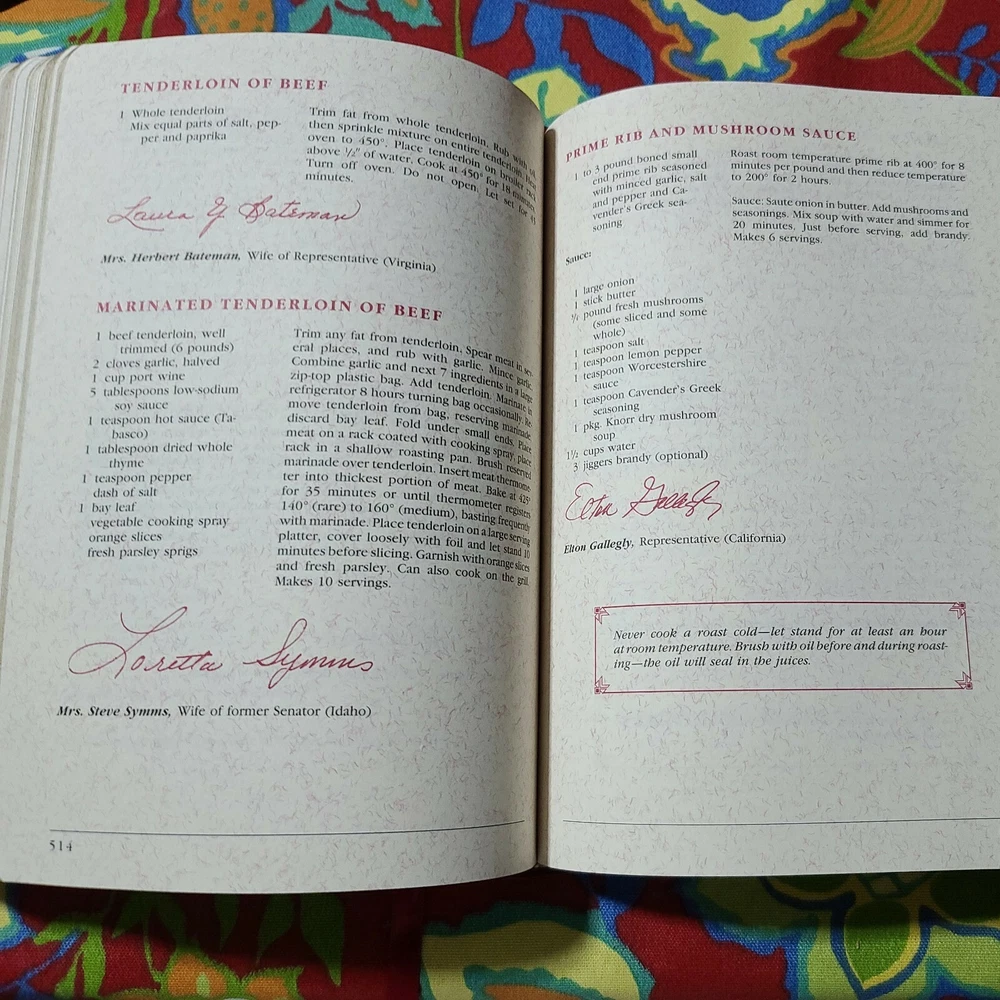 TENDERLOIN OF BEEF
1 Whole tenderloin
Mix equal parts of salt, pep-
per and paprika
Trim fat from whole tenderloin. Rub with
then sprinkle mixture on entire tenderloin.
oven to 450°. Place tenderloin on broiler rack
above ½" of water. Cook at 450° for 18 minutes.
Turn off oven. Do not open. Let set for 45
minutes.
Laura Y Bateman
Mrs. Herbert Bateman, Wife of Representative (Virginia)
MARINATED TENDERLOIN OF BEEF
1 beef tenderloin, well
trimmed (6 pounds)
2 cloves garlic, halved
1 cup port wine
5 tablespoons low-sodium
soy sauce
1 teaspoon hot sauce (Ta-
basco)
1 tablespoon dried whole
thyme
1 teaspoon pepper
dash of salt
1 bay leaf
vegetable cooking spray
orange slices
fresh parsley sprigs
Trim any fat from tenderloin. Spear meat in sev-
eral places, and rub with garlic. Mince garlic.
Combine garlic and next 7 ingredients in a large
zip-top plastic bag. Add tenderloin. Marinate in
refrigerator 8 hours turning bag occasionally. Re-
move tenderloin from bag, reserving marinade
discard bay leaf. Fold under small ends. Place
meat on a rack coated with cooking spray, place
rack in a shallow roasting pan. Brush reserved
marinade over tenderloin. Insert meat thermome-
ter into thickest portion of meat. Bake at 425°
for 35 minutes or until thermometer registers
140° (rare) to 160° (medium), basting frequently
with marinade. Place tenderloin on a large serving
platter, cover loosely with foil and let stand 10
minutes before slicing. Garnish with orange slices
and fresh parsley. Can also cook on the grill.
Makes 10 servings.
Loretta Symms
Mrs. Steve Symms, Wife of former Senator (Idaho)
514
PRIME RIB AND MUSHROOM SAUCE
1 to 3 pound boned small
end prime rib seasoned
with minced garlic, salt
and pepper and Ca-
vender's Greek sea-
soning
Roast room temperature prime rib at 400° for 8
minutes per pound and then reduce temperature
to 200° for 2 hours.
Sauce: Saute onion in butter. Add mushrooms and
seasonings. Mix soup with water and simmer for
20 minutes. Just before serving, add brandy.
Makes 6 servings.
Sauce:
1 large onion
1 stick butter
pound fresh mushrooms
(some sliced and some
whole)
1 teaspoon salt
1 teaspoon lemon pepper
1 teaspoon Worcestershire
sauce
1 teaspoon Cavender's Greek
seasoning
1 pkg. Knorr dry mushroom
soup
1½ cups water
3 jiggers brandy (optional)
Elton Gallegly
Elton Gallegly, Representative (California)
Never cook a roast cold—let stand for at least an hour
at room temperature. Brush with oil before and during roast-
ing—the oil will seal in the juices.